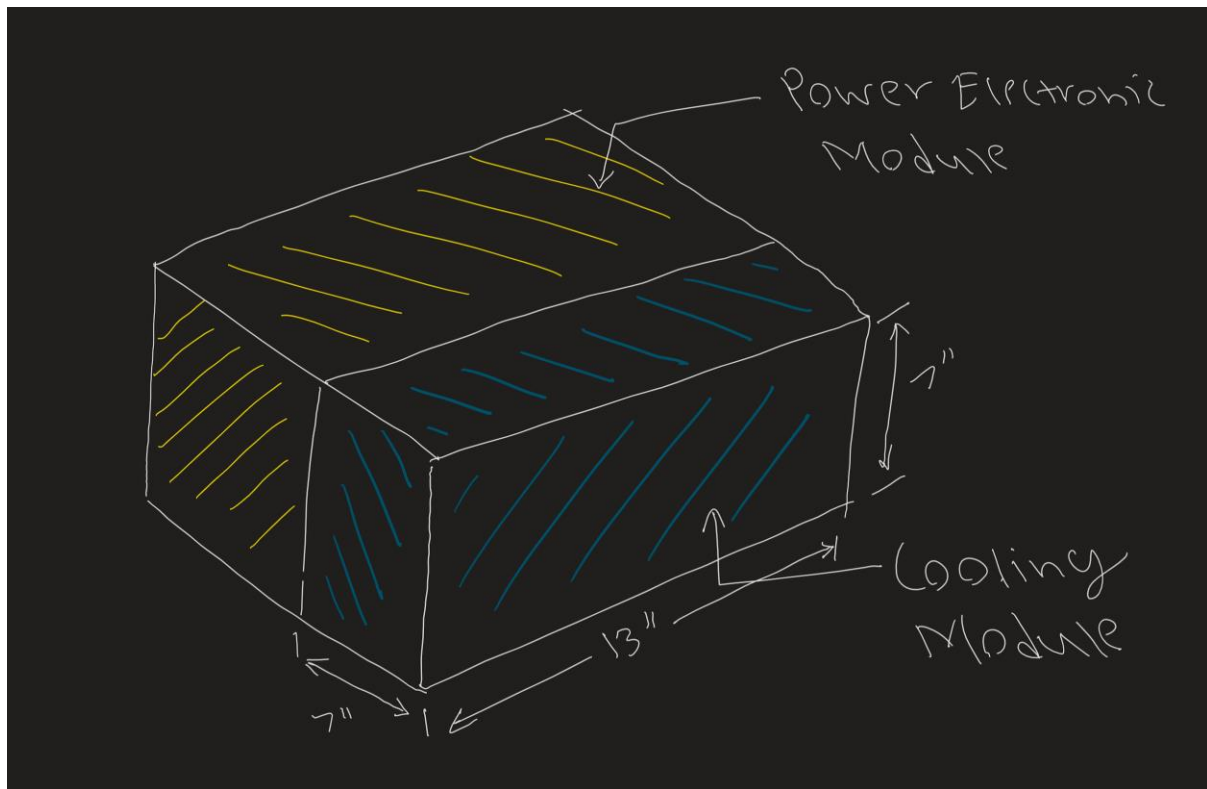 Power Electronic
Module
7"
Cooling
Module
13"
7"